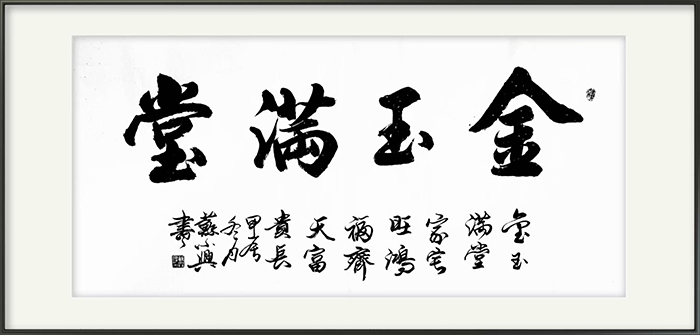 金玉满堂
金玉
满堂
家宅
旺鸿
福齊
天富
貴長
甲辰
冬月
蘇小興
書